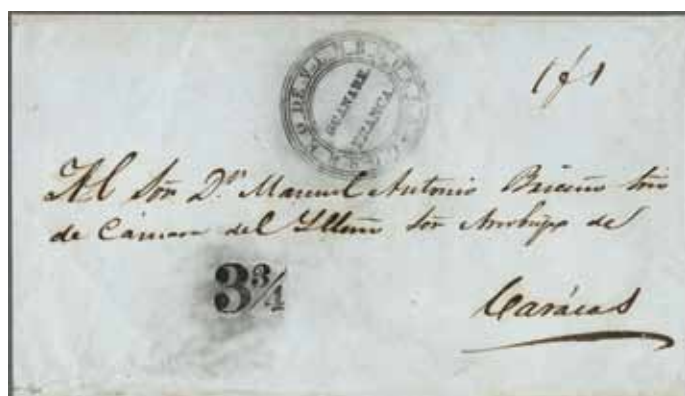 GUANARE
FRANCA
1 f 1
Al Sor Dn. Manuel Antonio Briceño Srio
de Cámara del Yltmo Sor Arzobispo de
3 3/4
Carácas